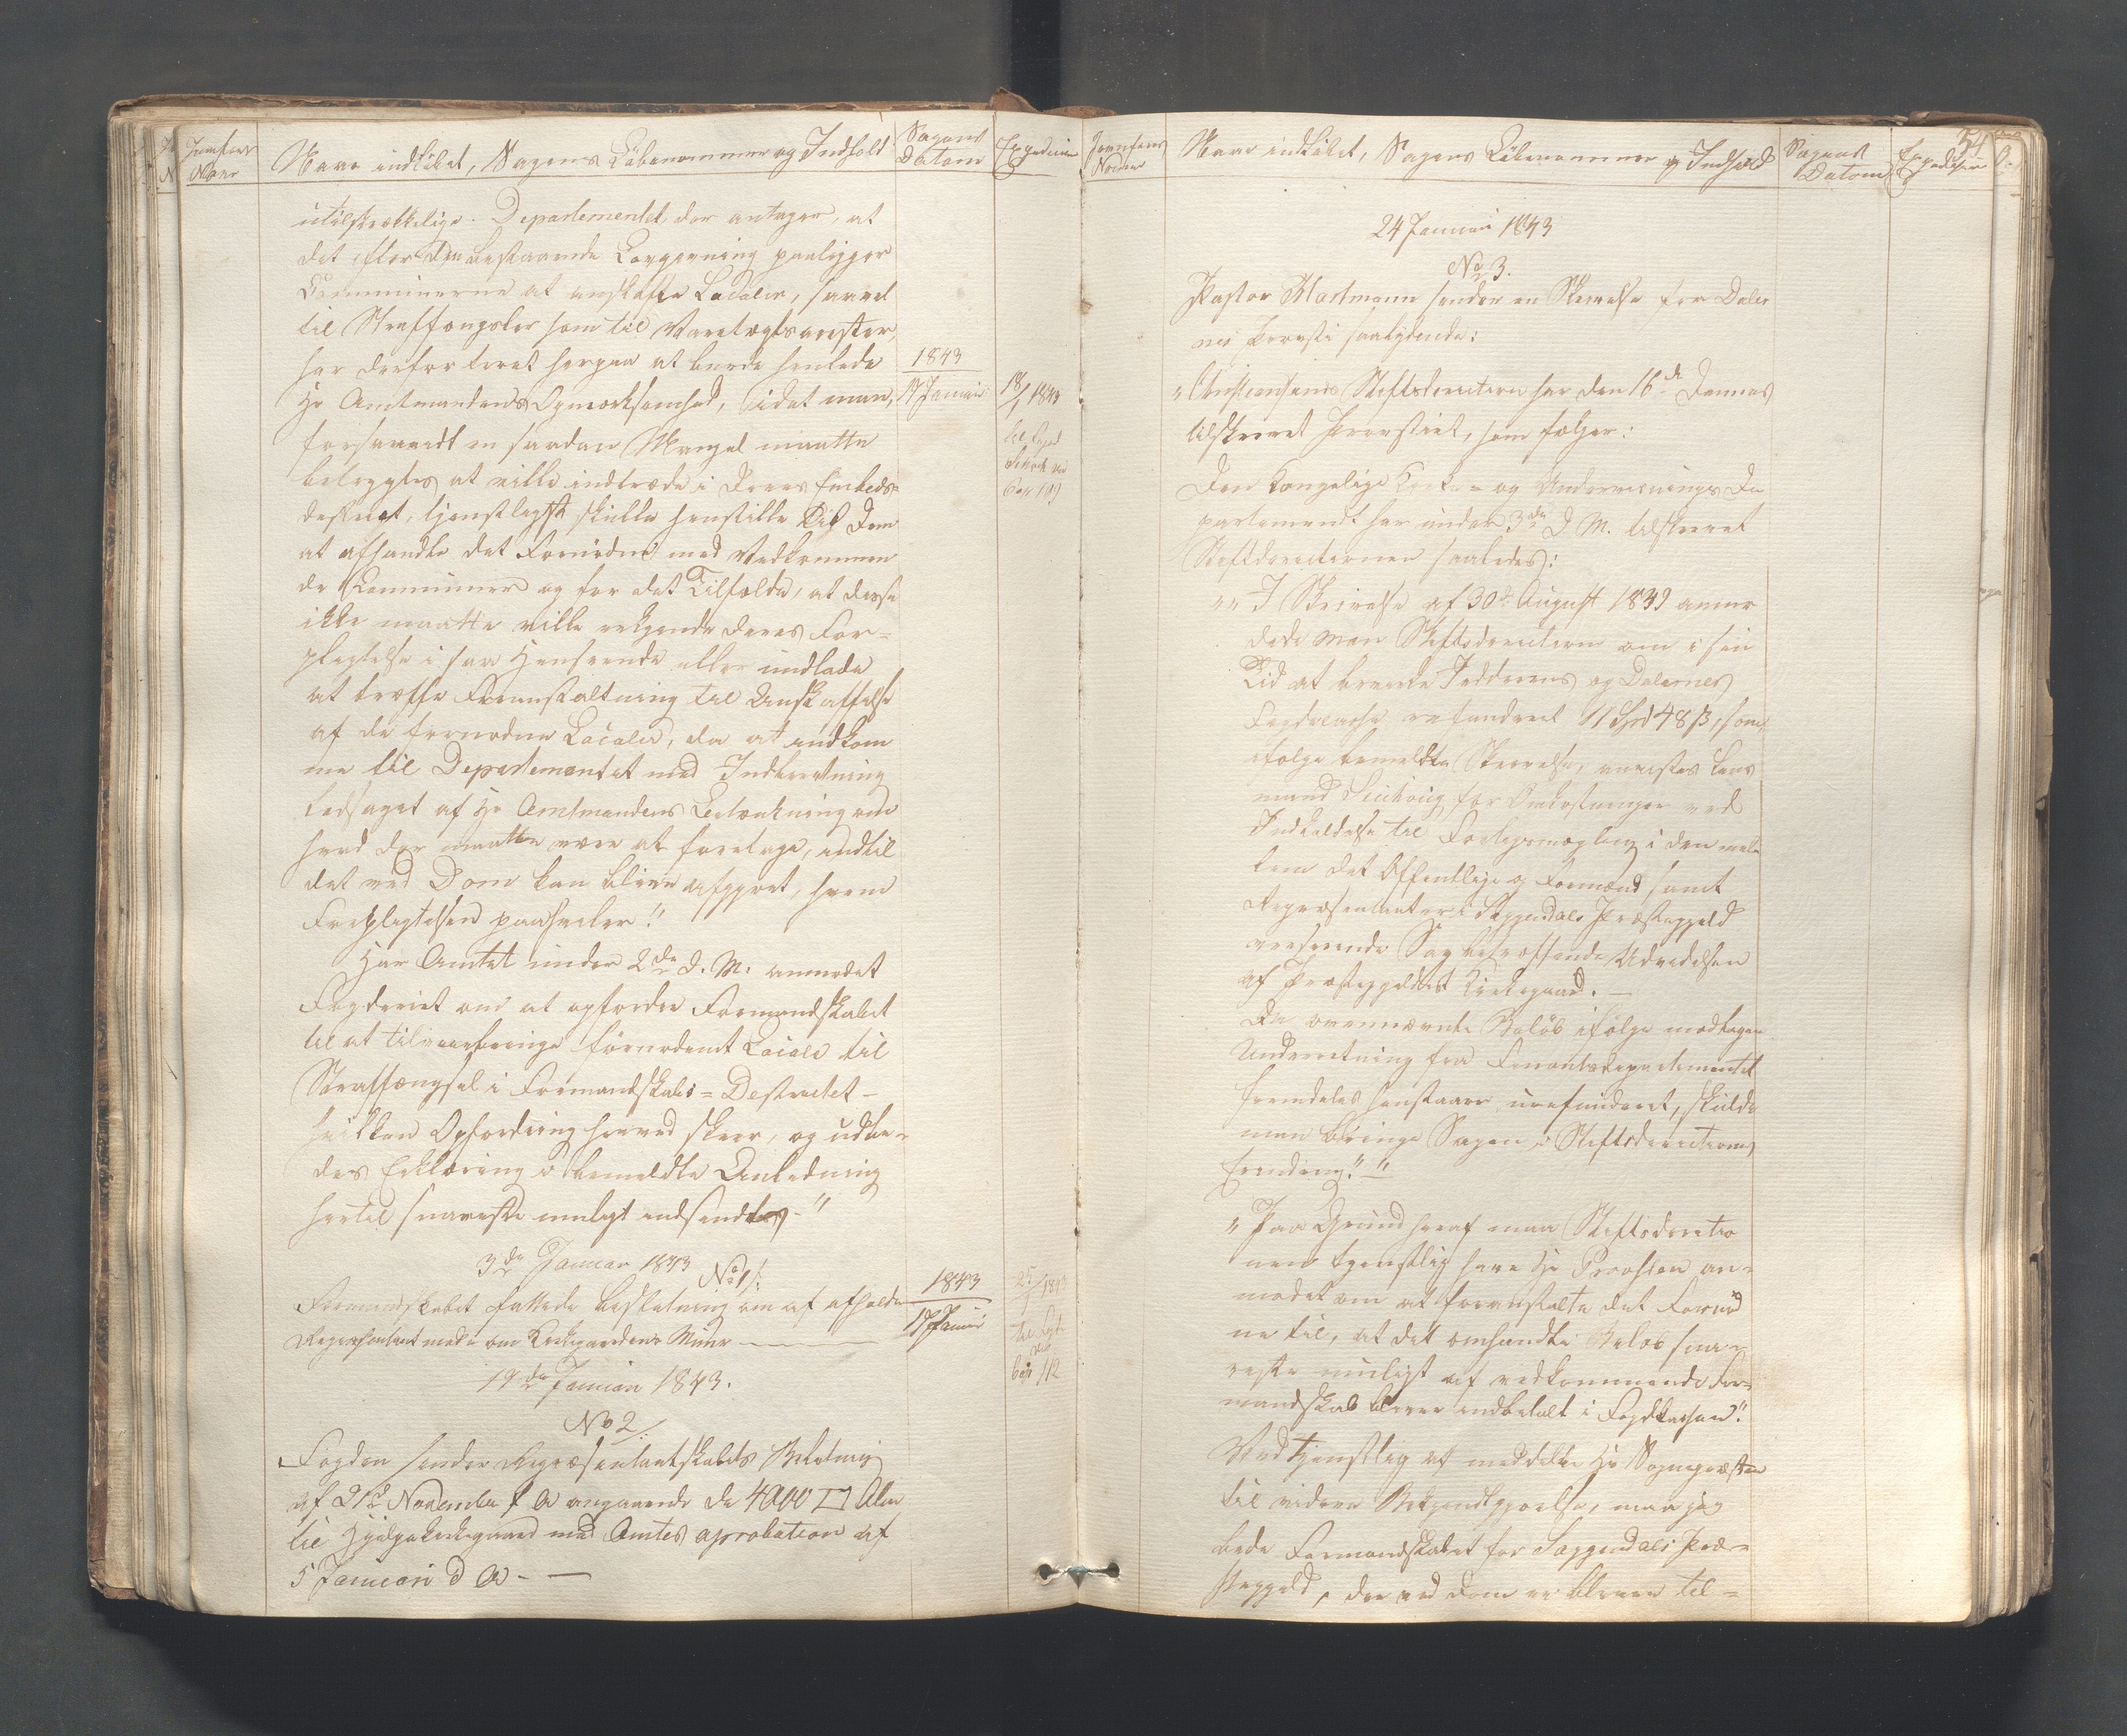 Naar indkibet, Sagens Löbenommer og Indhold
Sagens Datom
Expedition
utilstrækkelige. Departementet der antager, at
det efter den bestaaende Lovgivning paaligger
Communerne at anskaffe Localer, saavel
til Straffængsler som til Varetægtsarrester,
har derfor troet herpaa at burde henlede
Hr Amtmandens Opmærksomhed, idet man,
forsaavidt en saadan Mangel maatte
befrygtes at ville indtræde i Deres Embeds=
destrict, tjenstligst skulle henstille til Dem
at afhandle det Fornødne med Vedkommen
de Communer og for det Tilfælde, at disse
ikke maatte ville erkjende deres For=
pligtelse i saa Henseende eller undlade
at træffe Foranstaltning til Anskaffelse
af de fornødne Localer, da at indkom
me til Departementet med Indberetning
ledsaget af Hr Amtmandens Betænkning om
hvad der maatte være at foretage, indtil
det ved Dom kan blive afgjort, hvem
Forpligtelsen paahviler."
Har Amtet under 2de d. M. anmodet
Fogderiet om at opfordre Formandskabet
til at tilveiebringe fornødent Locale til
Straffængsel i Formandskabs=Destrictet -
hvilken Opfordring herved skeer, og udbe=
des Erklæring i bemeldte Anledning
hertil snareste muligt indsendtes -"
1843
17 Januar
18/1 1843
3de Januar 1843
No 1/.
Formandskabet fattede beslutning om at afholde
Repræsentant møde om Kirkegaardens Muur
1843
17 Januar
25/1 1843
19de Januar 1843.
No 2/.
Fogden sender Repræsentantskabets Beslutning
af 21de November f A angaaende de 4000 □ Alen
til Hjelpekirkegaard med Amtes aprobation af
5 Januari d A - —
Naar indkibet, Sagens Löbenommer og Indhold
Sagens Datom
Expedition
54
24 Januari 1843
No 3.
Pastor Hartmann sender en Skrivelse fra Daler
nes Provsti saalydende:
"Christiansands Stiftsdirection har den 16de Dennes
tilskrevet Provstiet, som følger:
Den Kongelige Kirke= og Undervisnings De
partement har under 3de d M. tilskrevet
Stiftdirectionen saaledes:
"" I Skrivelse af 30de August 1839 anmo
dede man Stiftsdirectionen om i sin
Tid at bevirke Jedderens og Dalernes
Fogdcasse refunderet 11 Spd 48 β, som
ifølge bemeldte Skrivelse, anvistes Lens
mand for Omkostninger ved
Indkaldelse til Forligsmægling i den mel
lem det Offentlige og Formænd samt
Repræsentanter i Soggendals Præstegjeld
verserende Sag betræffende Udvidelsen
af Præstegjeldets Kirkegaard. —
Da ovennævnte Beløb ifølge modtagen
Underretning fra Finantsdepartementet
fremdeles henstaaer urefunderet, skulde
man bringe Sagen i Stiftsdirectionens
Erindring." "
"Paa Grund heraf maa Stiftsdirectio
nen tjenstlig have Hr Provsten an=
modet om at foranstalte det Fornød
ne til, at det omhandlte Beløb sna=
reste muligt af vedkommende For=
mandskab bliver indbetalt i Fogdkassen."
Ved tjenstlig at meddele Hr Sognepræsten
til videre Bekjendtgjørelse, maa jeg
bede Formandskabet for Soggendals Præ=
stegjeld, der ved Dom er bleven til=